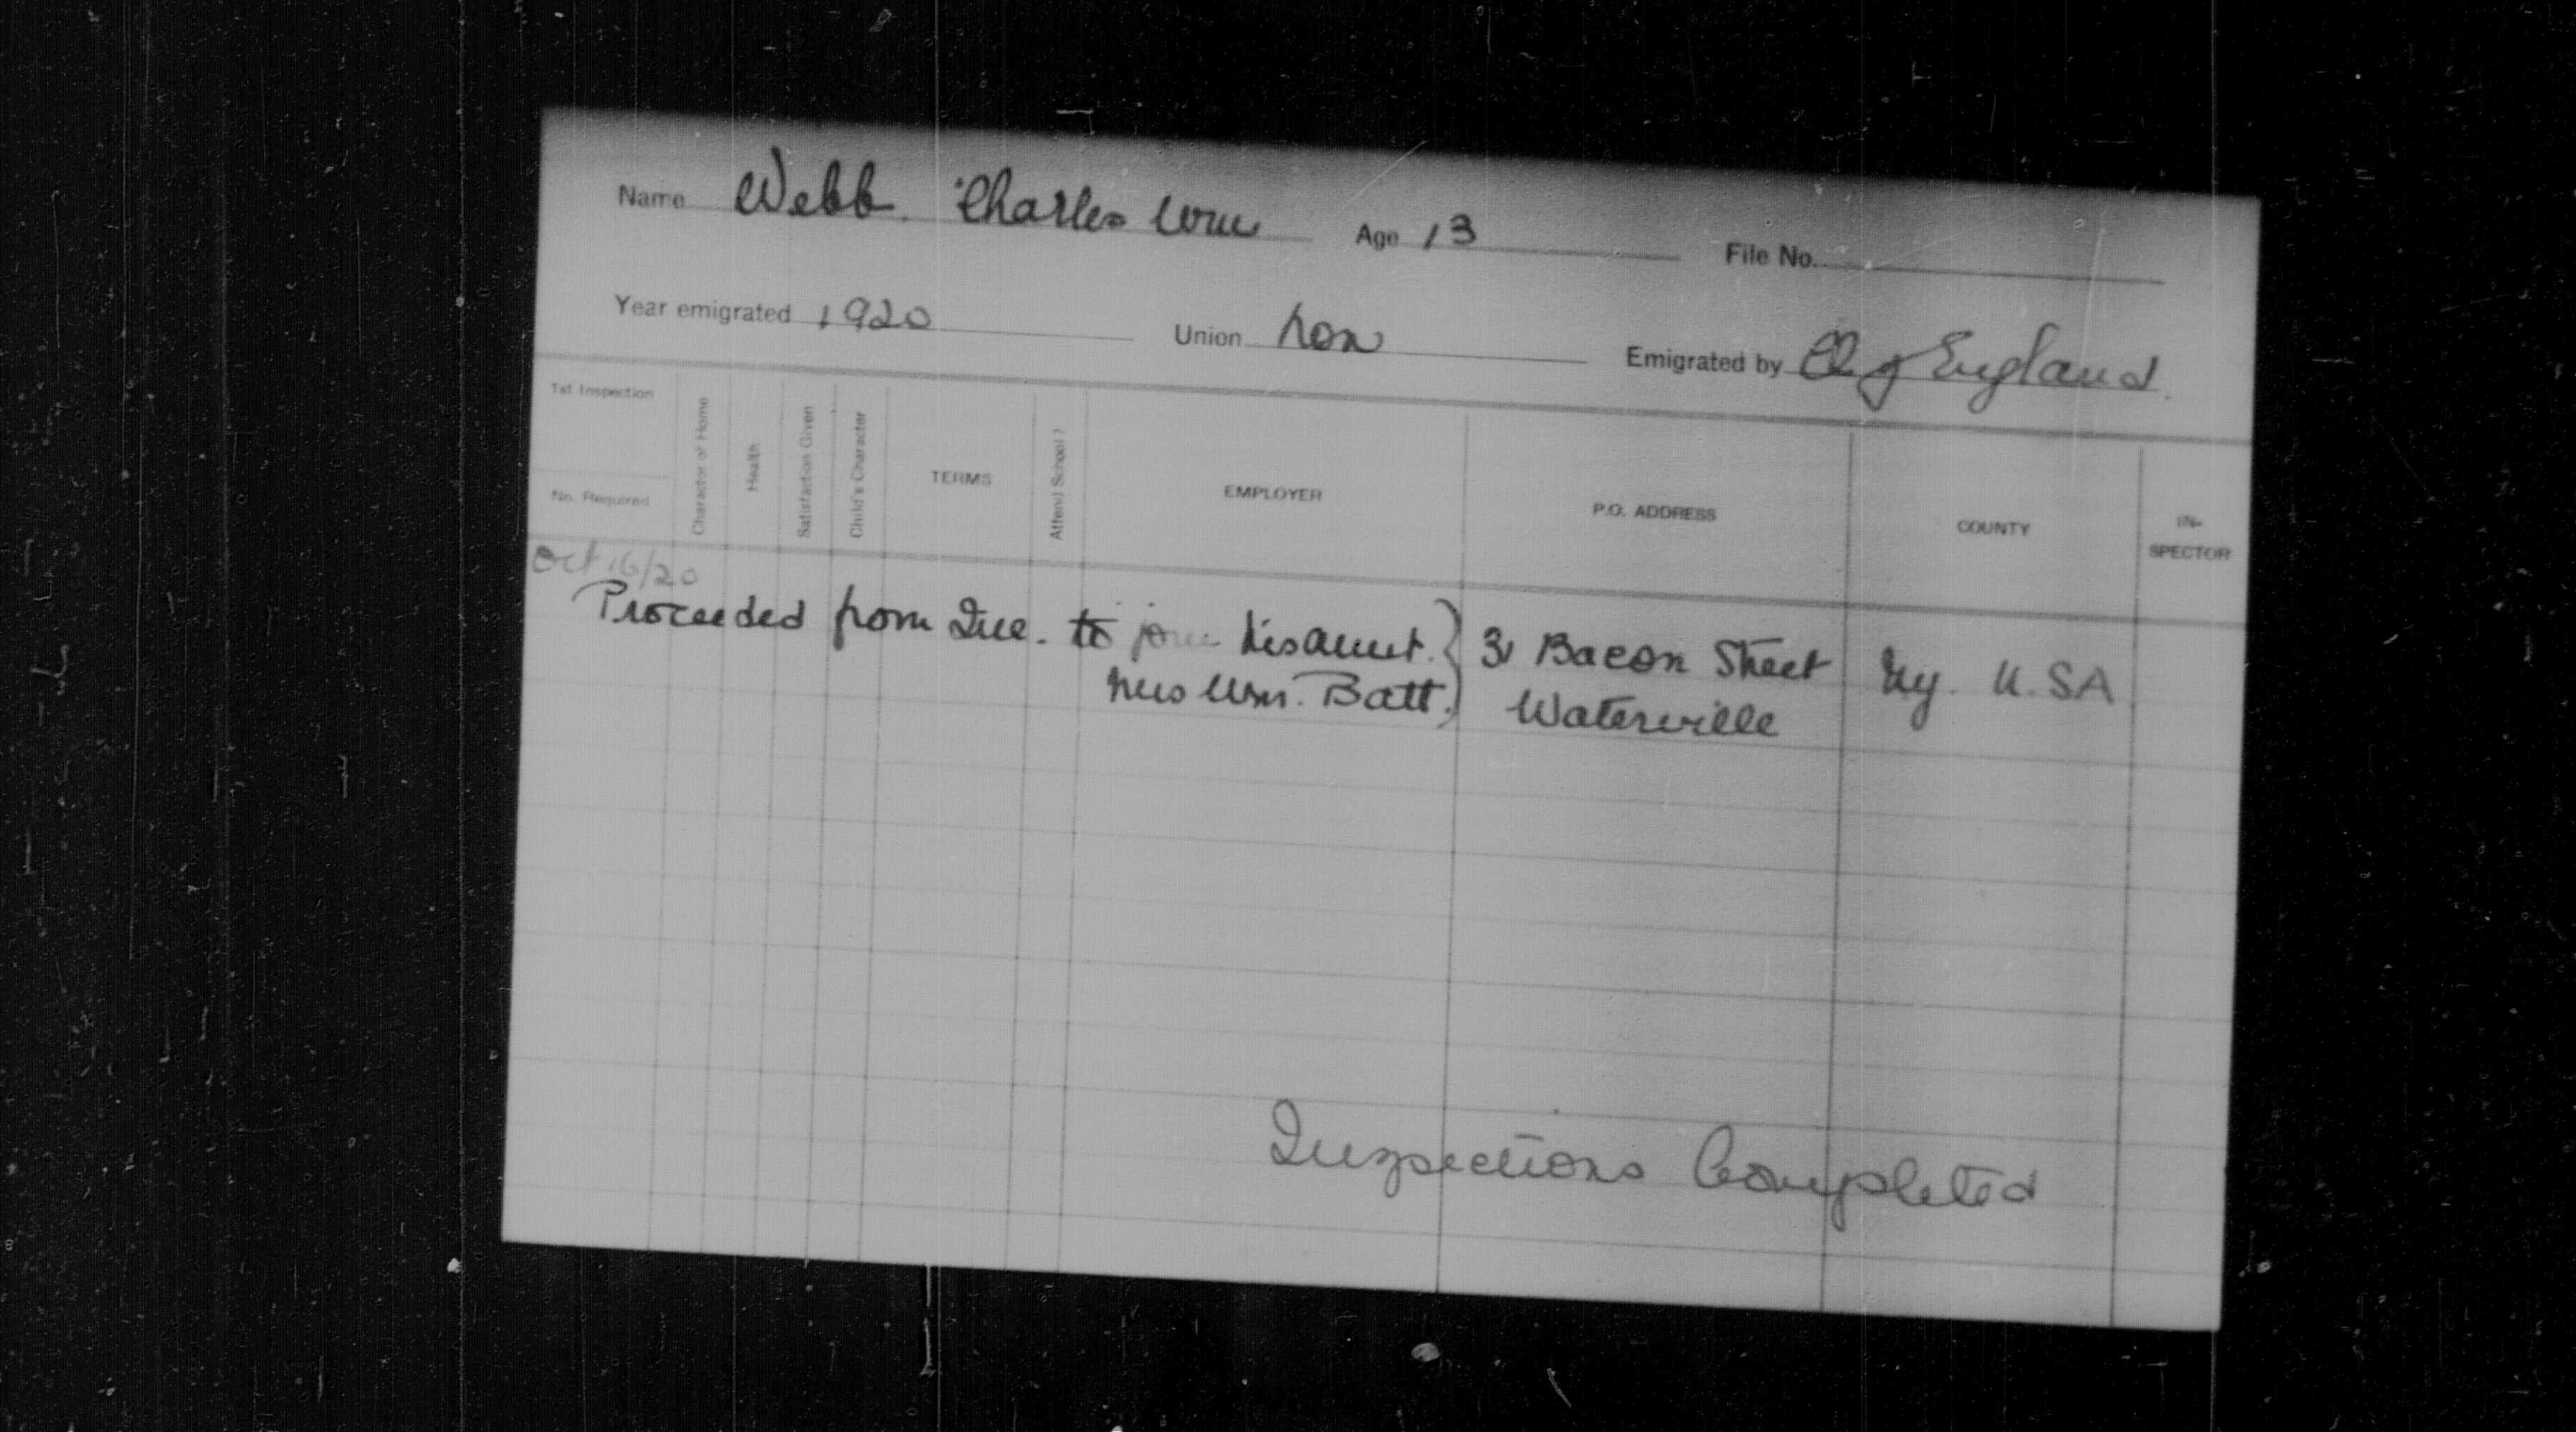 Name Webb. Charles Wm Age 13 File No.
Year emigrated 1920 Union Non Emigrated by Ch of England.
1st Inspection
No. Required
Character of Home
Health
Satisfaction Given
Child's Character
TERMS
Attend School?
EMPLOYER
P.O. ADDRESS
COUNTY
IN-
SPECTOR
Oct 16/20
Proceeded from Que. to join his aunt. } 31 Bacon Street NY. U.S.A
Mrs Wm. Batt. Waterville
Inspections Completed